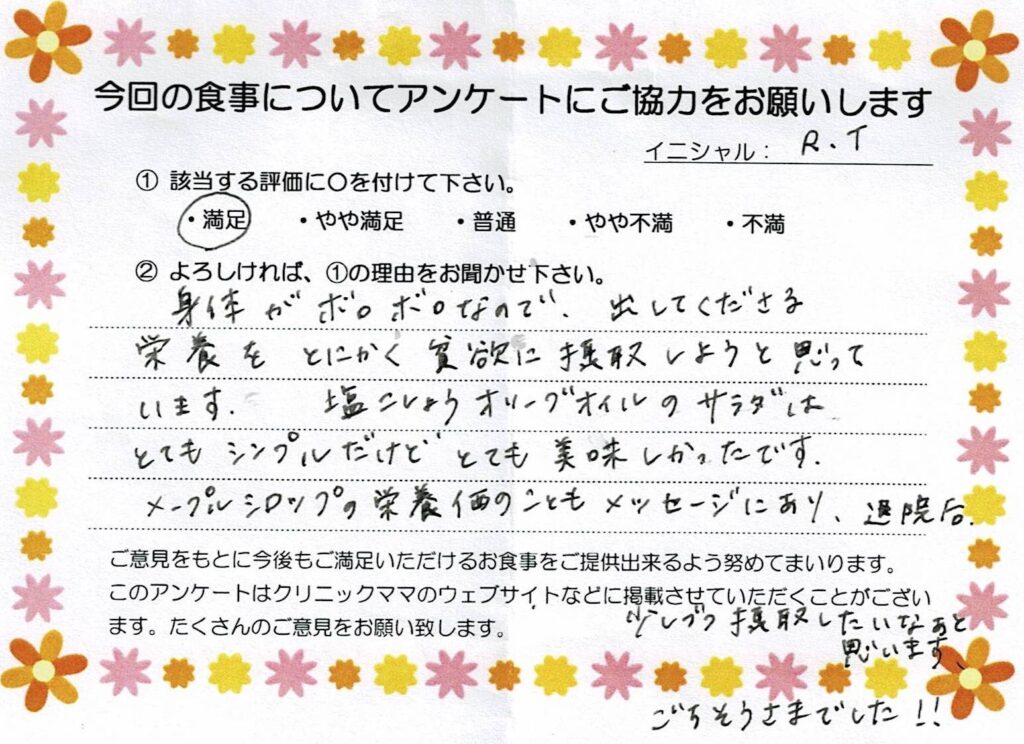 今回の食事についてアンケートにご協力をお願いします
イニシャル： R.T
① 該当する評価に〇を付けて下さい。
・満足 ・やや満足 ・普通 ・やや不満 ・不満
② よろしければ、①の理由をお聞かせ下さい。
身体がボロボロなので、出してくださる
栄養をとにかく貪欲に摂取しようと思って
います。 塩こしょうオリーブオイルのサラダは
とてもシンプルだけどとても美味しかったです。
メープルシロップの栄養価のこともメッセージにあり、退院后、
ご意見をもとに今後もご満足いただけるお食事をご提供出来るよう努めてまいります。
このアンケートはクリニックママのウェブサイトなどに掲載させていただくことがござい
ます。たくさんのご意見をお願い致します。
少しづつ摂取したいなぁと
思います、
ごちそうさまでした!!